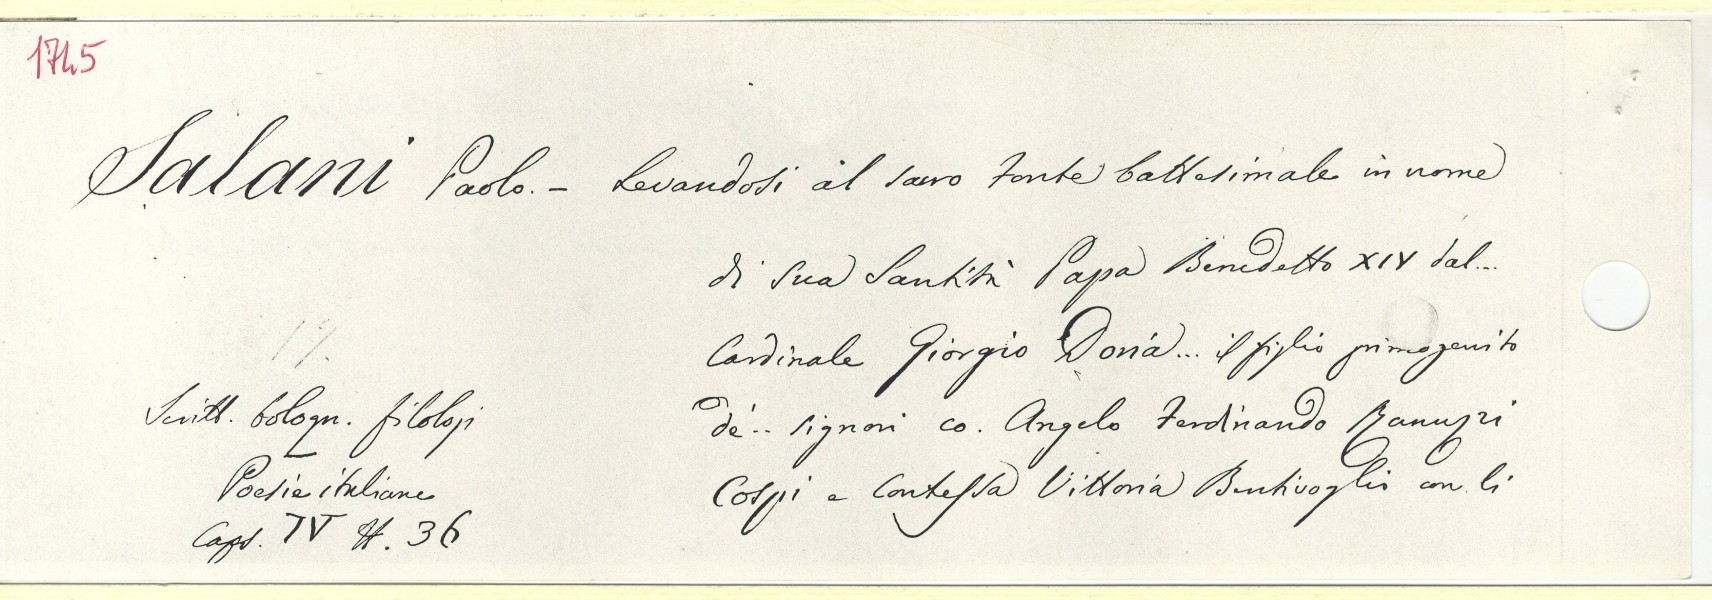 1745
Salani Paolo. - Levandosi al sacro fonte battesimale in nome
di Sua Santità Papa Benedetto XIV dal...
Cardinale Giorgio Doria... il figlio primogenito
de'.. signori co. Angelo Ferdinando Ranuzzi
Cospi e Contessa Vittoria Bentivoglio con li
Scritt. bologn. filologi
Poesie italiane
Caps. IV N. 36